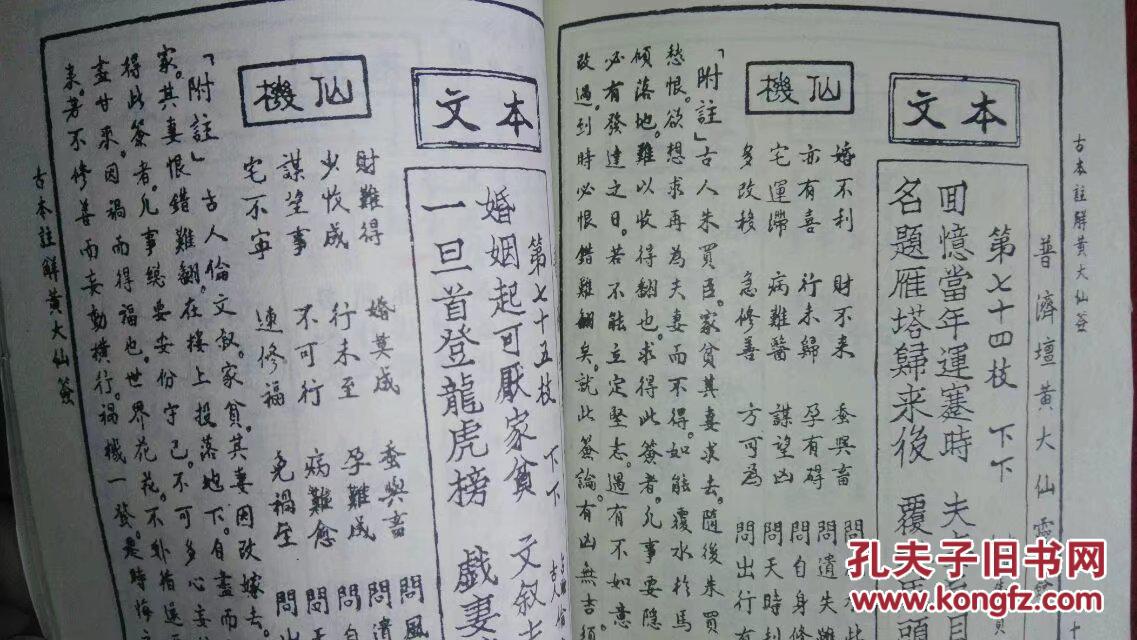 古本註解黃大仙簽
普濟壇黃大仙靈
本文
第七十四枝 下下
回憶當年運蹇時 夫
名題雁塔歸来後 覆 頭
仙機
婚不利 財不来 蚕與畜 問
亦有喜 行未歸 孕有碍 問遺失
宅運滯 病難醫 謀望凶 問自身修
多改移 急修善 方可為 問天時
問出行有
「附註」古人朱買臣。家貧其妻求去。隨後朱買
愁恨。欲想求再為夫妻而不得。如能覆水於馬
傾落地。難以收得翻也。求得此簽者。凡事要隱
必有發達之日。若不能立定堅志。遇有不如意
改過。到時必恨錯難翻矣。就此簽論。有凶無吉。須
本文
第七十五枝 下下
古人
婚姻起可厭家貧 文叙
一旦首登龍虎榜 戲妻
仙機
財難得 婚莫成 蚕與畜 問風
少收成 行未至 孕難成 問
謀望事 不可行 病難愈 問自
宅不宁 速修福 免禍坐 問
問出
「附註」古人倫文叙。家貧。其妻因改嫁去。
家。其妻恨錯難翻。在接上投落地下。自盡而
得此簽者。凡事總要安份守己。不可多心妄
盡甘来。因禍而得福也。世界花花。不
来。若不修善而妄動横行。禍機一發。是時悔
古本註解黃大仙簽
孔夫子旧书网
www.kongfz.com